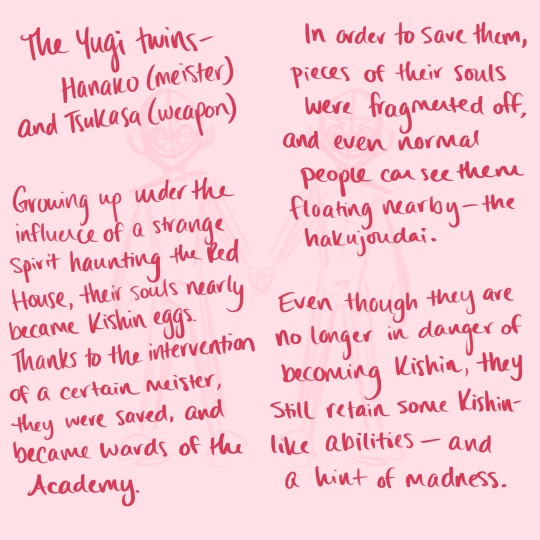 The Yugi twins-
Hanako (meister)
and Tsukasa (weapon)
Growing up under the
influence of a strange
spirit haunting the Red
House, their souls nearly
became Kishin eggs.
Thanks to the intervention
of a certain meister,
they were saved, and
became wards of the
Academy.
In order to save them,
pieces of their souls
were fragmented off,
and even normal
people can see them
floating nearby—the
hakujoudai.
Even though they are
no longer in danger of
becoming Kishin, they
still retain some Kishin-
like abilities — and
a hint of madness.